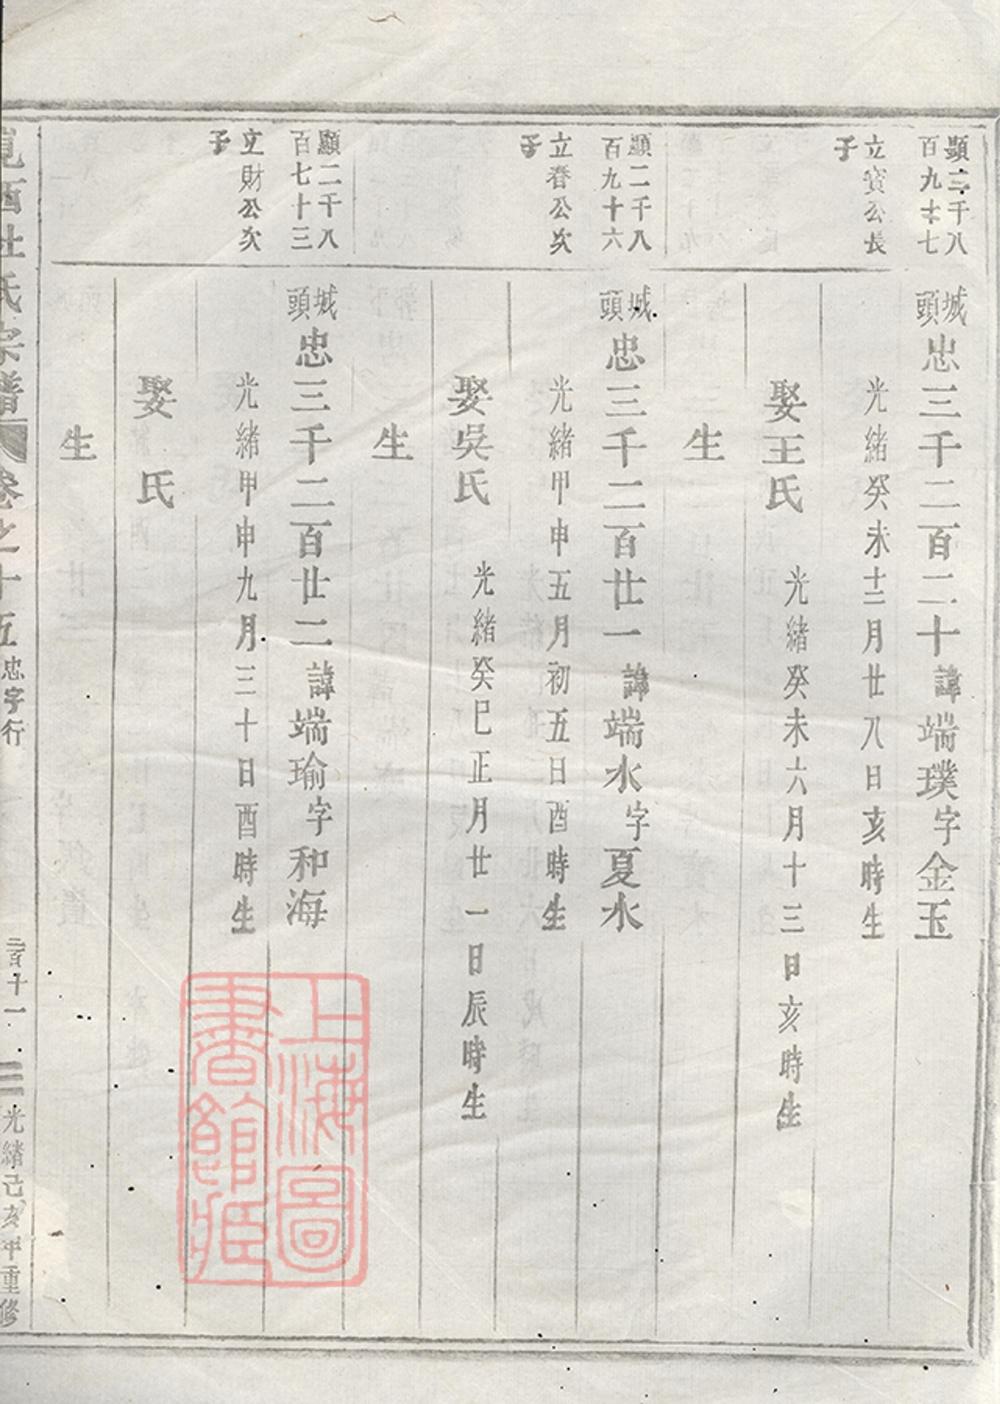 顯二千八
百九十七
立寶公長
子
城頭忠三千二百二十諱端璞字金玉
光緒癸未十二月廿八日亥時生
娶王氏 光緒癸未六月十三日亥時生
生
顯二千八
百九十六
立春公次
子
城頭忠三千二百廿一諱端水字夏水
光緒甲申五月初五日酉時生
娶吳氏 光緒癸巳正月廿一日辰時生
生
顯二千八
百七十三
立財公次
子
城頭忠三千二百廿二諱端瑜字和海
光緒甲申九月三十日酉時生
娶 氏
生
西杜氏宗譜 卷之十五 忠字行 二百十一 光緒己亥年重修
上海圖
書館藏